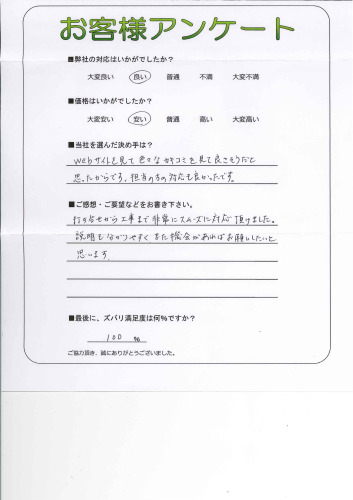 お客様アンケート
■弊社の対応はいかがでしたか？
大変良い 良い 普通 不満 大変不満
■価格はいかがでしたか？
大変安い 安い 普通 高い 大変高い
■当社を選んだ決め手は？
webサイトを見て色々な口コミを見て良さそうだと
思ったからです。担当の方の対応も良かったです。
■ご感想・ご要望などをお書き下さい。
打ち合せから工事まで非常にスムーズに対応頂けました。
説明もわかりやすくまた機会があればお願いしたいと
思います。
■最後に、ズバリ満足度は何％ですか？
100 %
ご協力頂き、誠にありがとうございました。